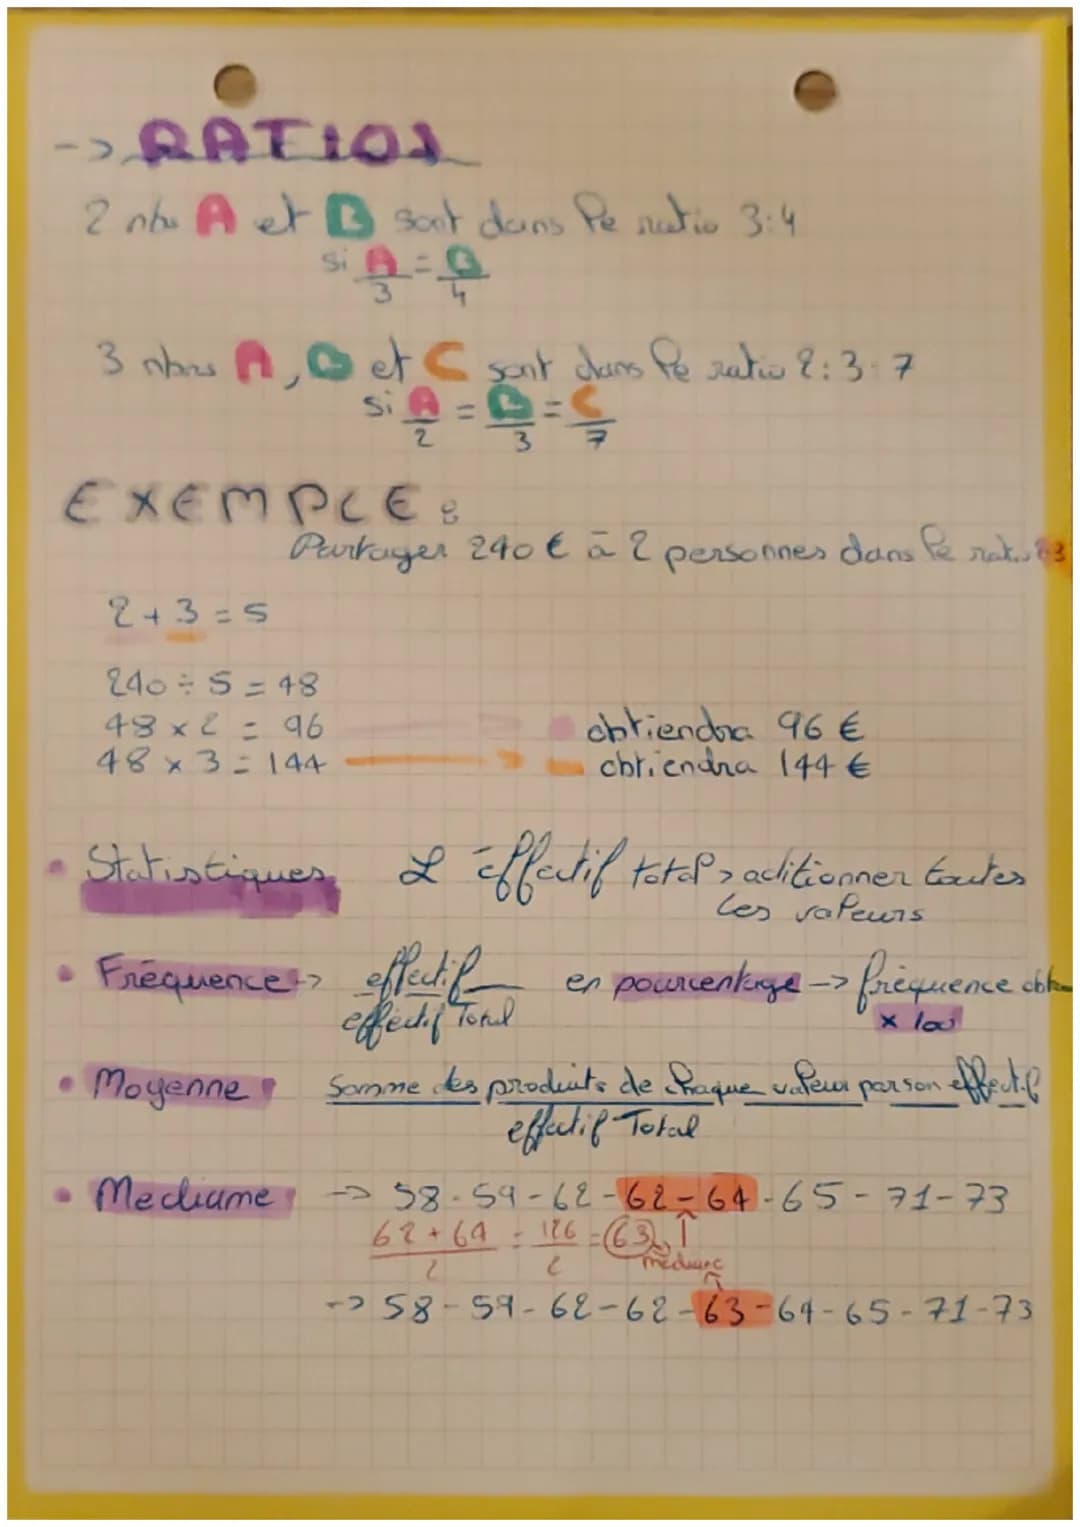 -> RATIOS
2 nbs A et B sont dans le ratio 3:4
si A/3 = B/4
3 nbrs A, B et C sont dans le ratio 2:3:7
si A/2 = B/3 = C/7
EXEMPLE:
Partager 240 € à 2 personnes dans le ratio 2:3
2 + 3 = 5
240 ÷ 5 = 48
48 x 2 = 96 obtiendra 96 €
48 x 3 = 144 obtiendra 144 €
• Statistiques L'éffectif total > aditionner toutes
les valeurs
• Fréquence -> effectif / effectif Total en pourcentage -> fréquence
x 100
• Moyenne Somme des produits de chaque valeur par son effectif
effectif Total
• Mediame -> 58 - 59 - 62 - 62 - 64 - 65 - 71 - 73
62 + 64 / 2 = 126 / 2 = 63
médiane
-> 58 - 59 - 62 - 62 - 63 - 64 - 65 - 71 - 73